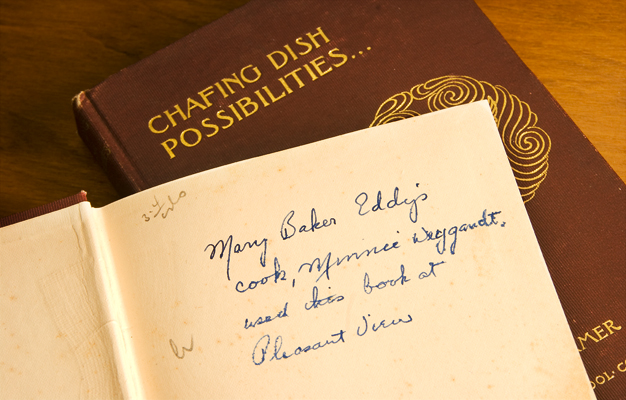 CHAFING DISH
POSSIBILITIES...
Mary Baker Eddy's
cook, Minnie Weygandt,
used this book at
Pleasant View
MER
OOL-C